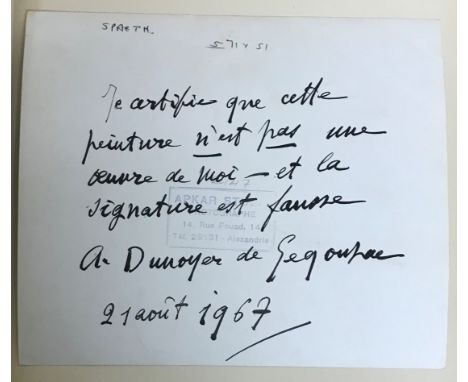 SPAETH.
51 x 71 5
Je certifie que cette
peinture n'est pas une
œuvre de moi — et la
signature est fausse
14, Rue Fouad, 14
Tél. 29131 - Alexandrie
A. Dunoyer de Segonzac
21 août 1967